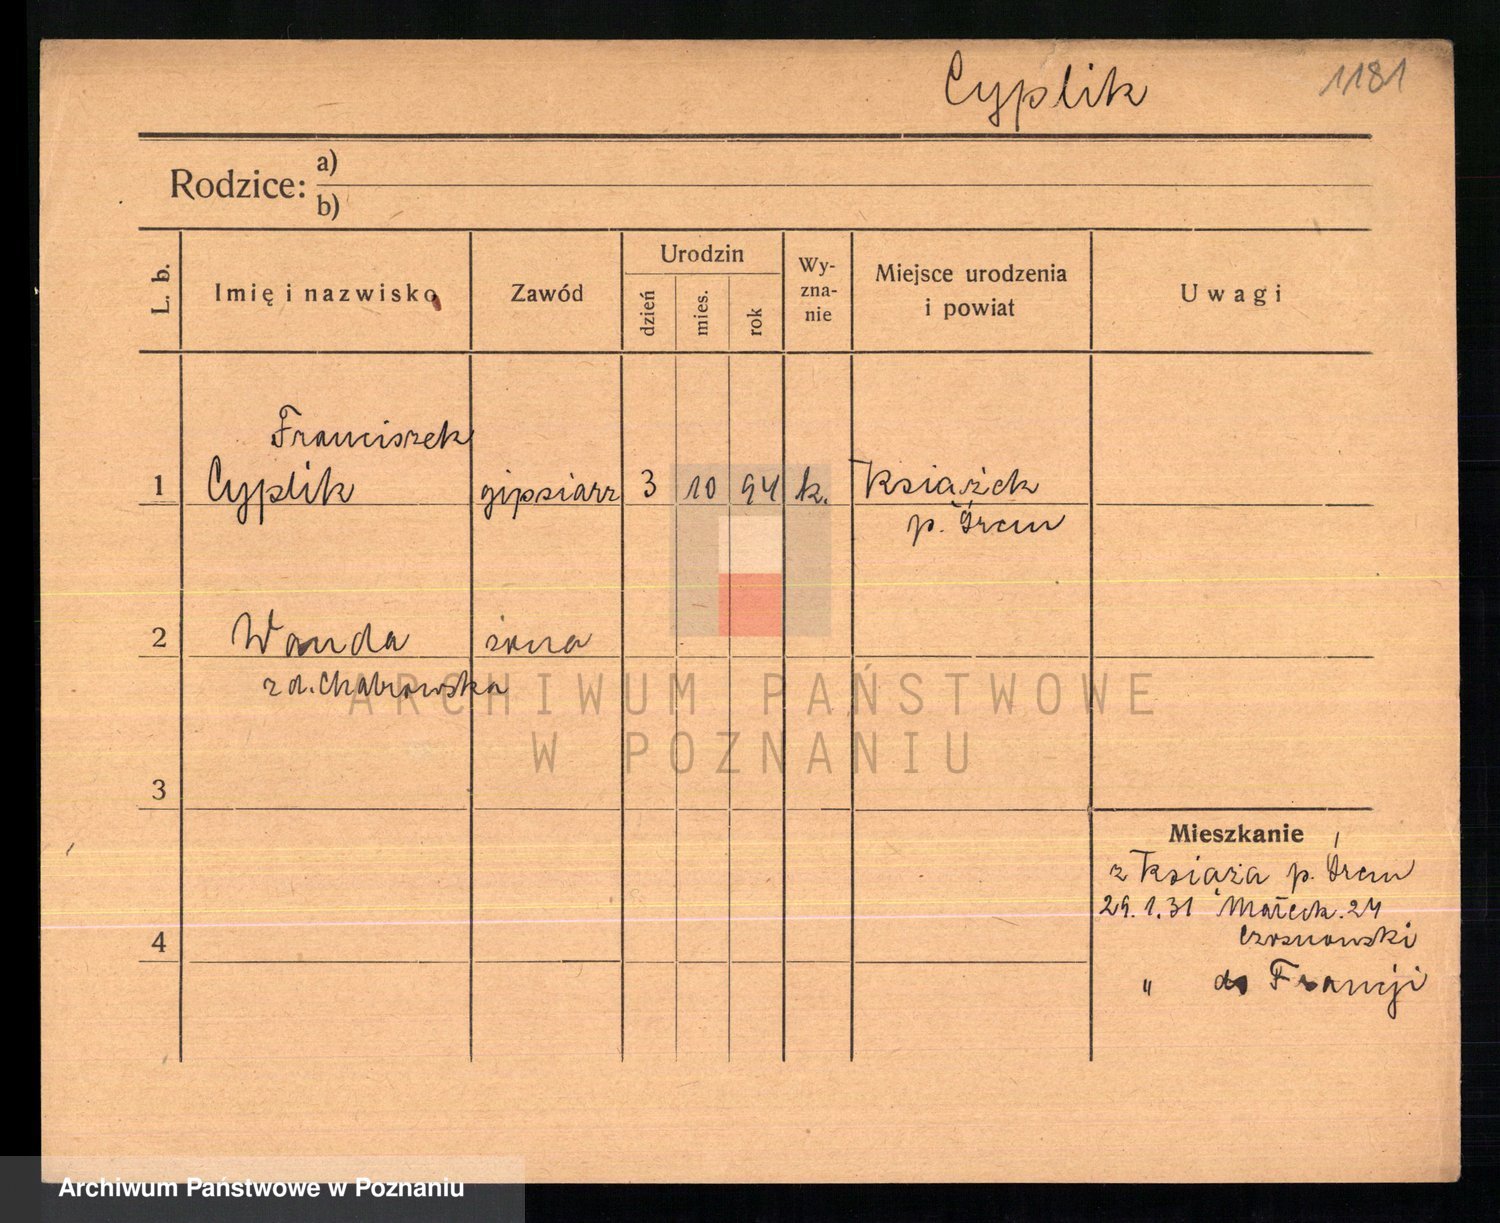 Cyplik 1181
Rodzice: a)
b)
L. b. Imię i nazwisko Zawód Urodzin dzień mies. rok Wy-zna-nie Miejsce urodzenia i powiat Uwagi
Franciszek
1 Cyplik gipsiarz 3 10 94 k. Książek
p. Śrem
2 Wanda żona
z d. Chabrowska
3
Mieszkanie
z Książa p. Śrem
29.1.31 Małeck. 24
Czosnowski
4
" do Francji
ARCHIWUM PAŃSTWOWE
W POZNANIU
Archiwum Państwowe w Poznaniu